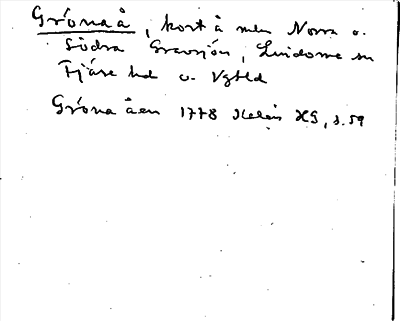 Gróna å, kort å mln Norra o.
Södra Gravsjön, Lindome sn
Fjäre hd o. Vgtld
Gróna åen 1778 XG, s. 59